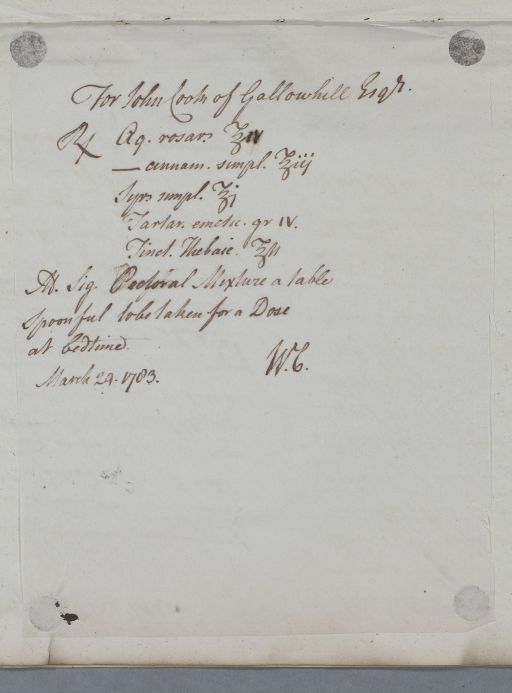 For John Coats of Gallowhill Esqr.
℞ Aq. rosar. ℥iv
— cinnam. simpl. ℥iij
Syr. simpl. ℥j
Tartar. emetic. gr iv.
Tinct. Thebaic. ʒii
M. Sig. Pectoral Mixture a table
spoonful to be taken for a Dose
at bedtime
March 24. 1783.
W.C.